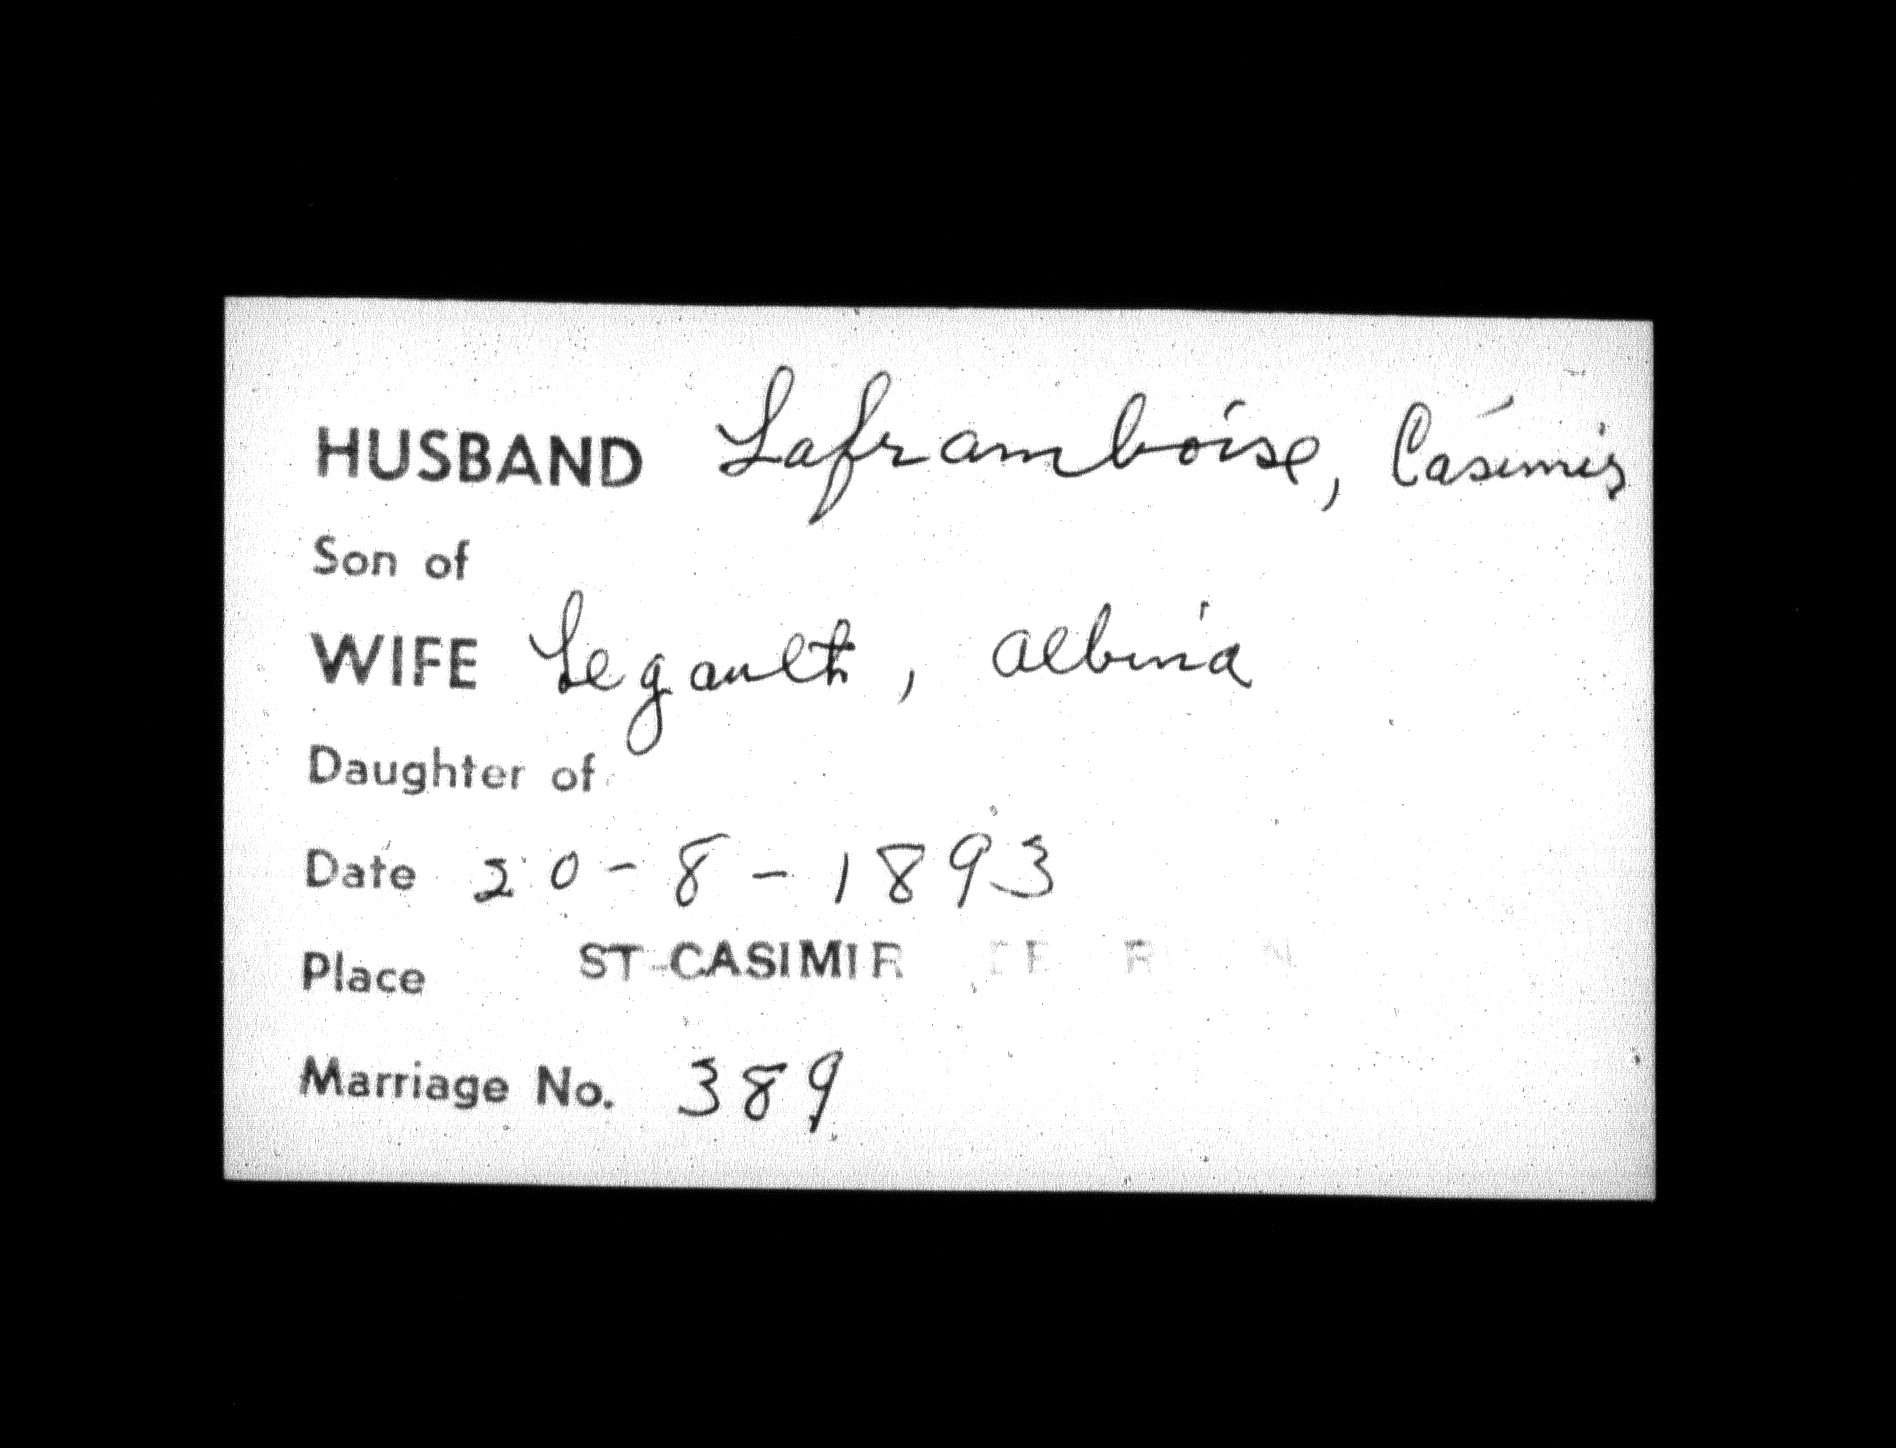 HUSBAND Laframboise, Casimir
Son of
WIFE Legault, Albina
Daughter of
Date 20-8-1893
Place ST-CASIMIR DE
Marriage No. 389